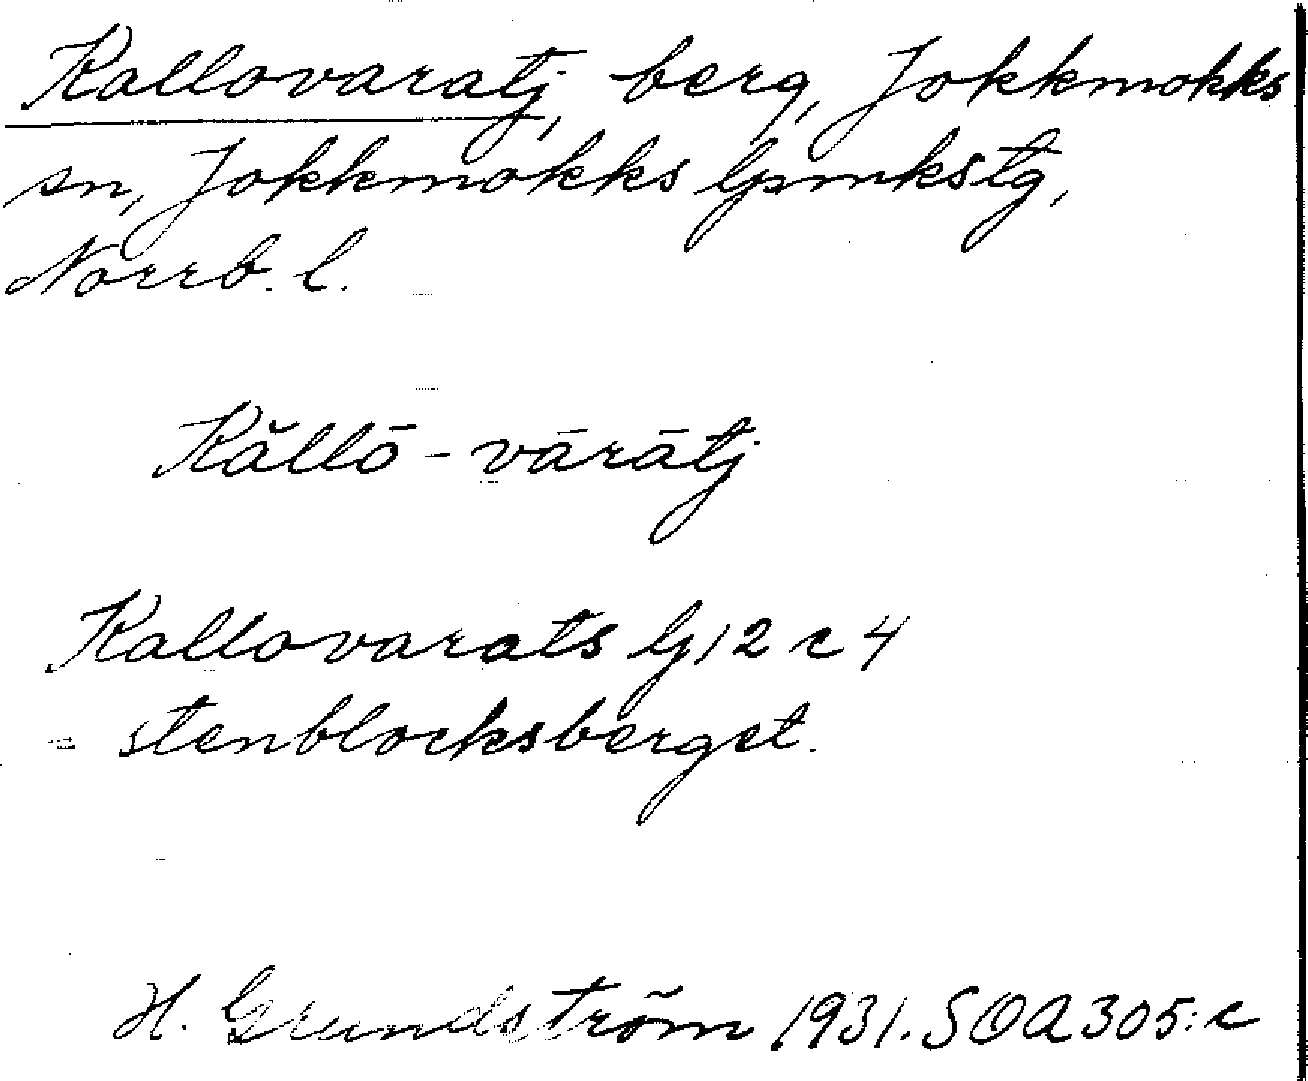 Kallovaratj, berg, Jokkmokks
sn, Jokkmokks lpmkstg,
Norrb. l.
Kăllō - vārātj
Kallovarats Gj 12 c 4
= stenblocksberget.
H. Grundström 1931. SOA 305:c